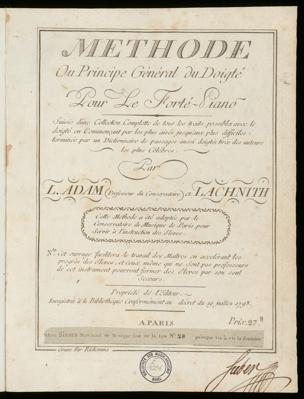 METHODE
Ou Principe Général du Doigté
Pour Le Forté-Piano
Suivie d'une Collection Complette de tous les traits possibles avec le
doigté en Commençant par les plus aisés jusqu'aux plus difficiles
terminée par un Dictionaire de passages aussi doigtés tirés des auteurs
les plus Célèbres.
Par
L. ADAM (Professeur du Conservatoire) et LACHNITH
Cette Methode a été adoptée par le
Conservatoire de Musique de Paris pour
Servir à l'instruction des Eleves.
Cet ouvrage facilitera le travail des Maîtres en accélérant les
progrès des Eleves, et ceux même qui ne sont pas professeurs
de cet instrument pourront former des Eleves par son seul
Secours.
Propriété de l'Editeur.
Enregistrée à la Bibliothèque Conformément au décret du 19 juillet 1793.
A PARIS
Prix. 27 ₶
Chez SIEBER Marchand de Musique rue de la Loi N.º 28
Gravée Par Richomme
Sieber